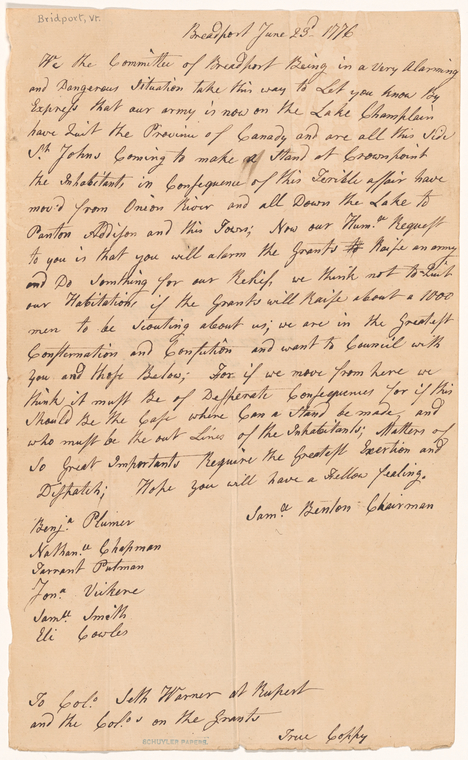 Bridport, Vt.
Breadport June 23d 1776
We the Committee of Breadport Being in a Very Alarming
and Dangerous Situation take this way to Let you know by
Express that our army is now on the Lake Champlain
have Quit the Province of Canady and are all this Side
St Johns Coming to make a Stand at Crownpoint
the Inhabitants in Consequence of this Terible affair have
mov'd from Oneon River and all Down the Lake to
Panton Addison and this Town; Now our Hum.le Request
to you is that you will alarm the Grants to Raise an army
and Do Somthing for our Relief, we think not to Quit
our Habitations if the Grants will Raise about a 1000
men to be Scouting about us; we are in the Greatest
Consternation and Confution and want to Council with
you and those Below; For if we move from here we
think it must Be of Desperate Consequences for if this
Should Be the Case where Can a Stand be made, and
who must be the out Lines of the Inhabitants; Matters of
So Great Importants Require the Greatest Exertion and
Dispatch; Hope you will have a Fellow fealing.
Saml. Benton Chairman
Benj.a Plumer
Nathan.ll Chapman
Tarrant Putman
Jona.
Samll Smith
Eli Cowles
To Col.o Seth Warner at Rupert
and the Col.os on the Grants
True Coppy
SCHUYLER PAPERS.